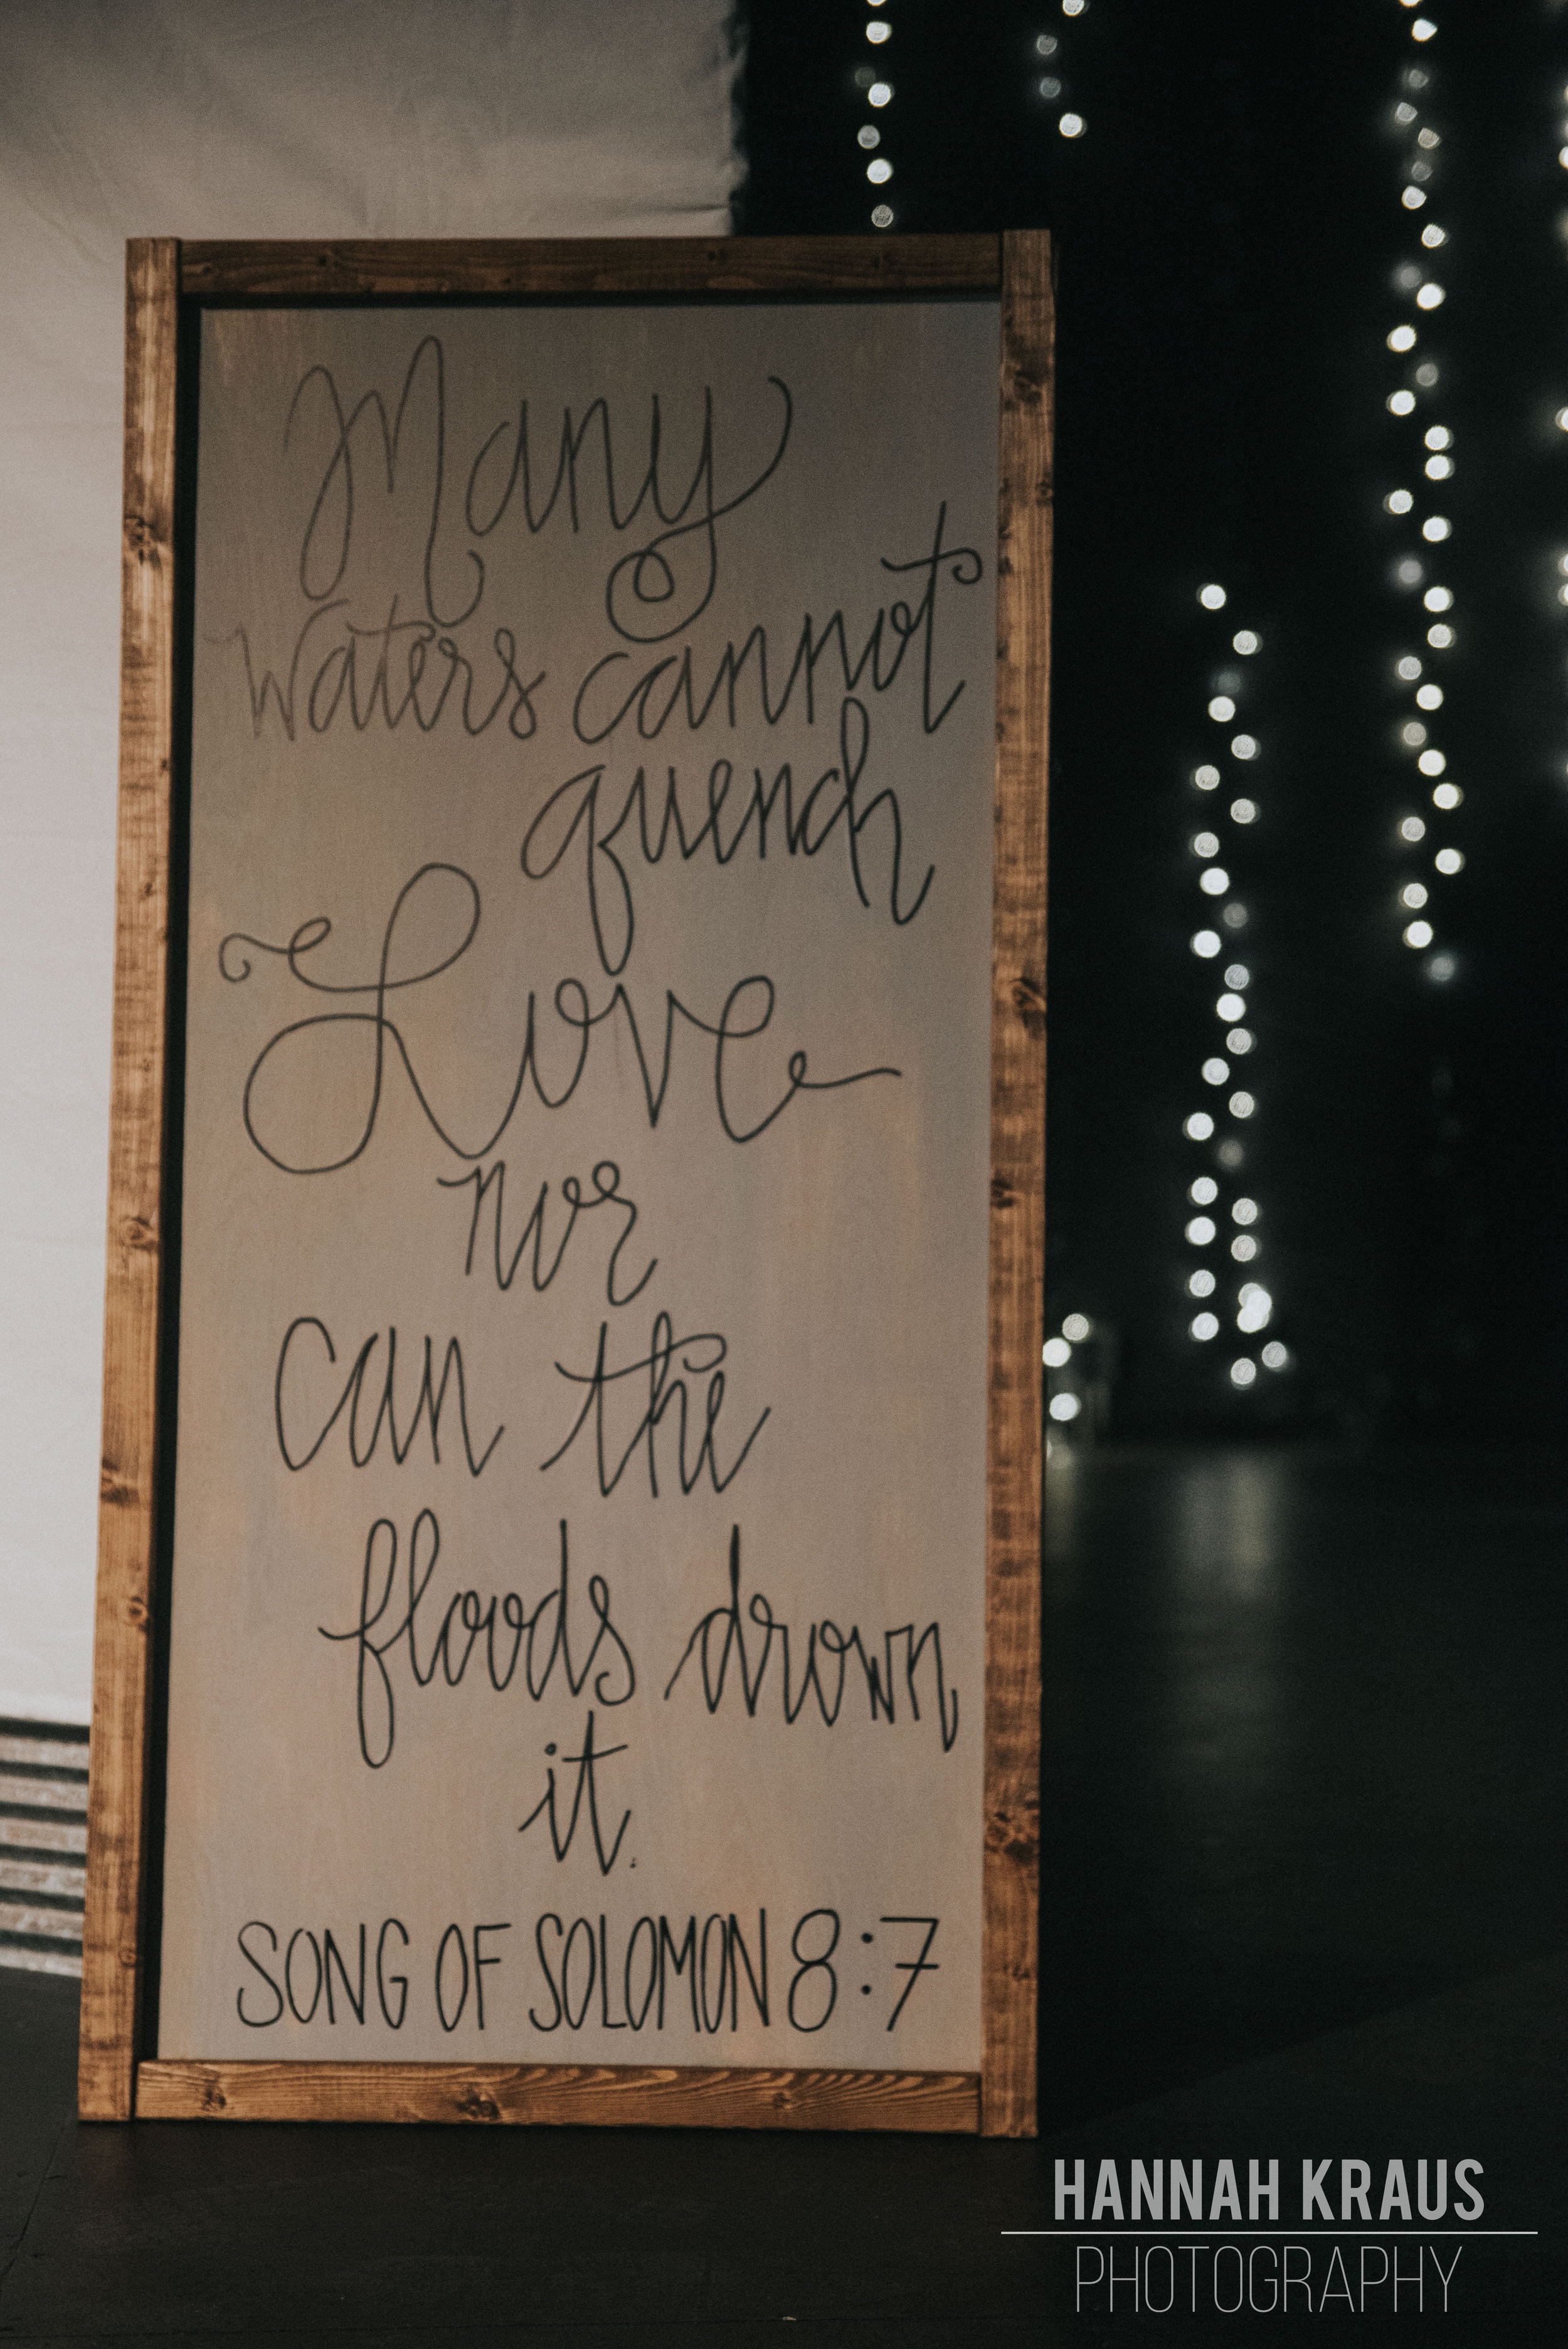 Many
Waters cannot
quench
Love
nor
can the
floods drown
it.
SONG OF SOLOMON 8:7
HANNAH KRAUS
PHOTOGRAPHY